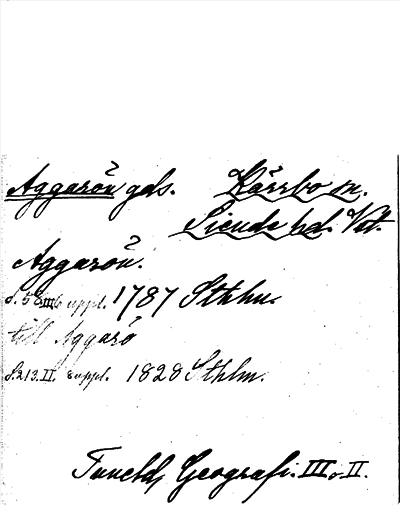 Aggarön gds. Kärrbo sn.
Siende hd. Vstm.
Aggarön.
s. 58 III uppl. 1787 Sthlm.
till Aggarö
s. 213. II. uppl. 1828 Sthlm.
Tuneld, Geografi. III o. II.